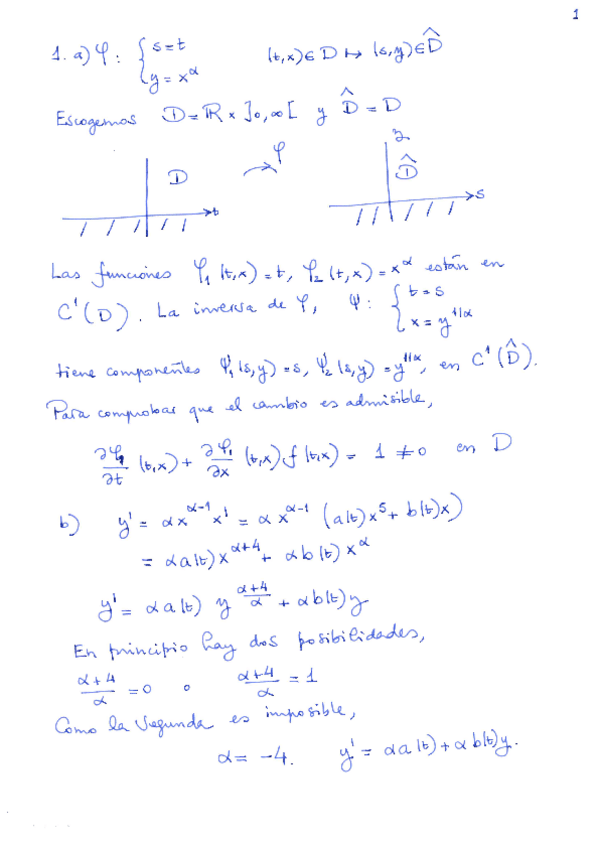 1
1. a) φ: { s = t    (t,x) ∈ D ↦ (s,y) ∈ D̂
y = x^α
Escogemos D = ℝ × ]0,∞[ y D̂ = D
φ
D    D̂
t    s
Las funciones φ₁(t,x) = t, φ₂(t,x) = x^α están en
C¹(D). La inversa de φ, ψ: { t = s
x = y^{1/α}
tiene componentes ψ₁(s,y) = s, ψ₂(s,y) = y^{1/α}, en C¹(D̂).
Para comprobar que el cambio es admisible,
∂φ₁/∂t (t,x) + ∂φ₁/∂x (t,x) f(t,x) = 1 ≠ 0 en D
b) y' = αx^{α-1} x' = αx^{α-1} (a(t)x⁵ + b(t)x)
= αa(t)x^{α+4} + αb(t)x^α
y' = αa(t) y^{(α+4)/α} + αb(t)y
En principio hay dos posibilidades,
(α+4)/α = 0 o (α+4)/α = 1
Como la segunda es imposible,
α = -4. y' = αa(t) + αb(t)y.